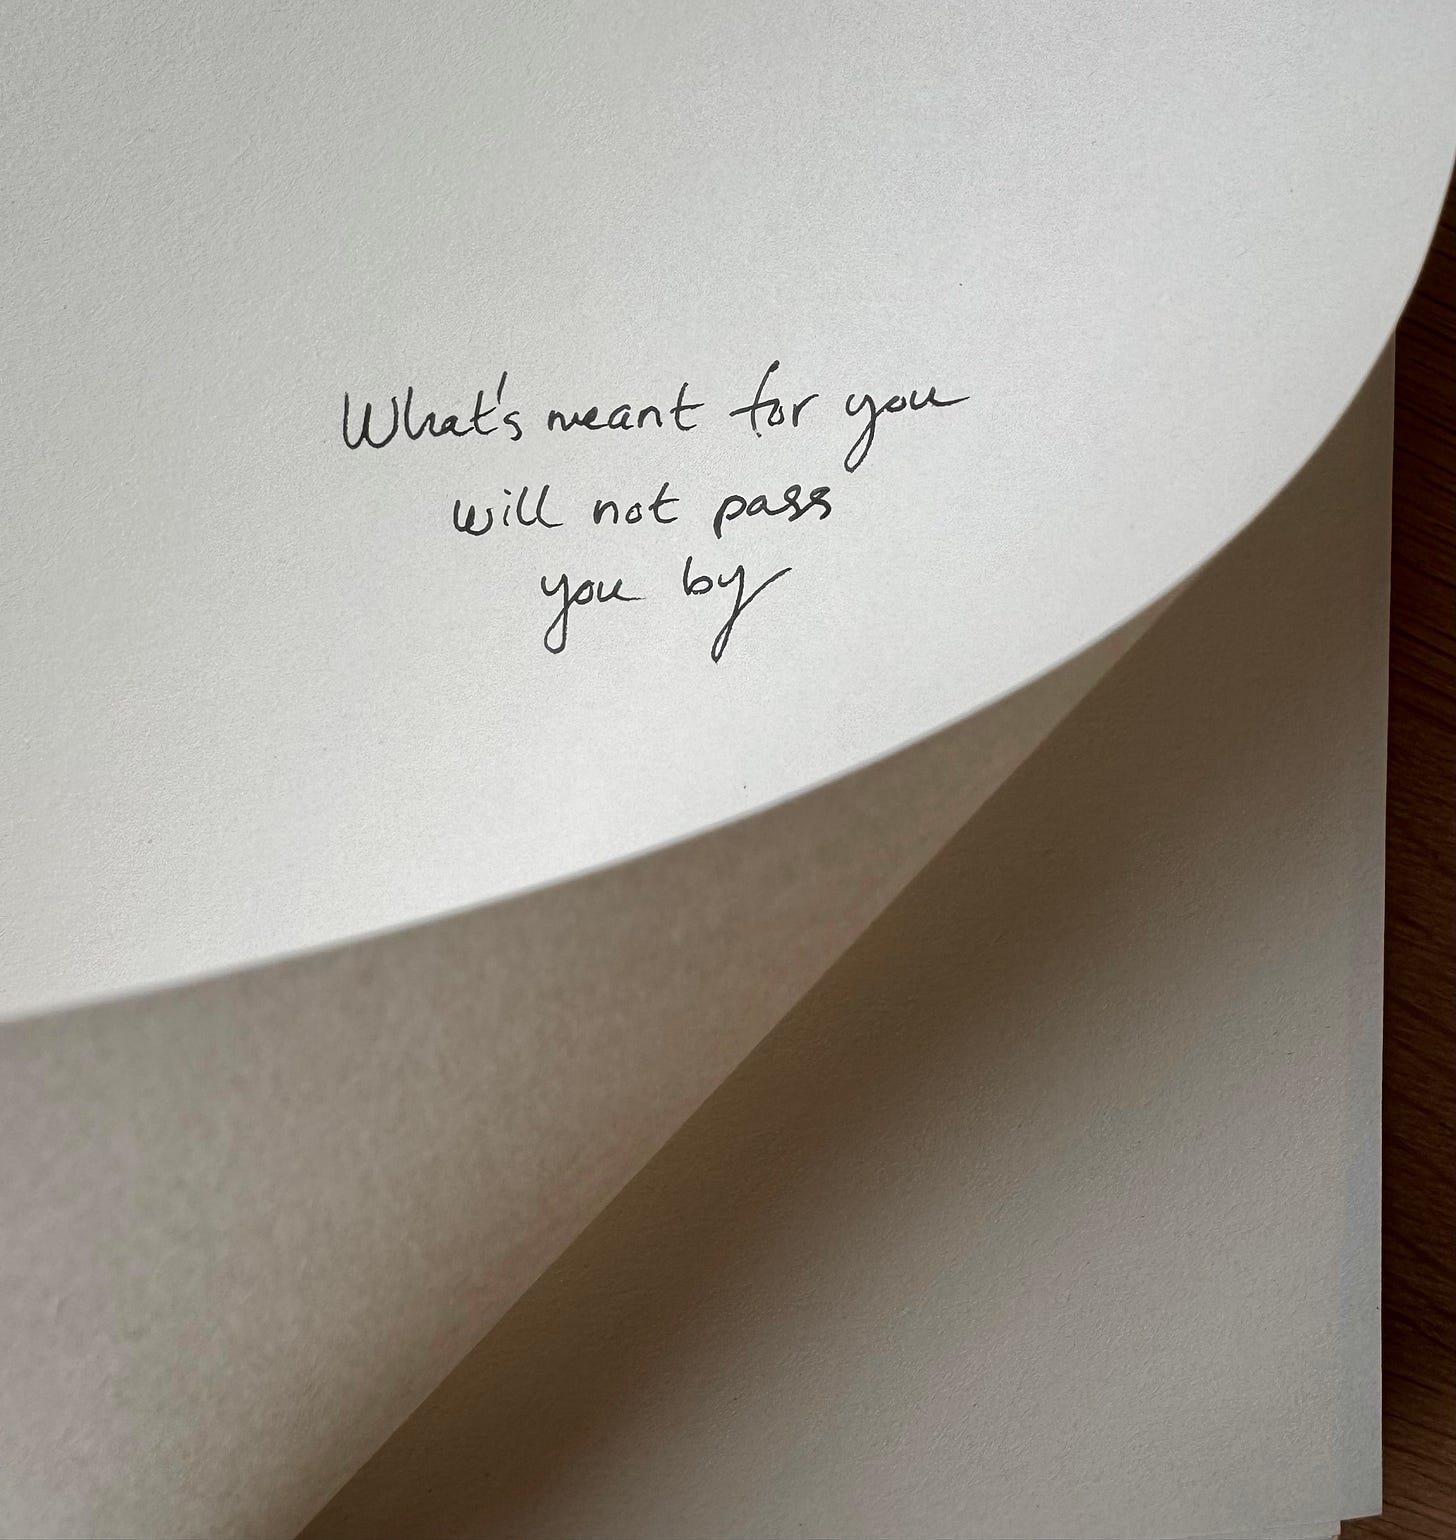 What's meant for you
will not pass
you by